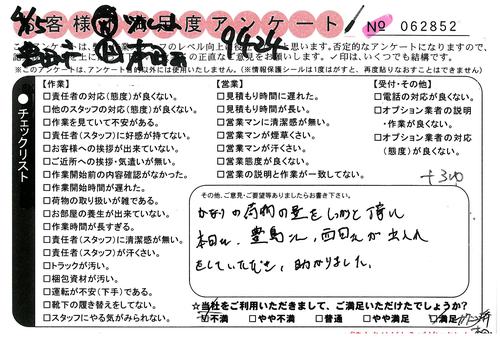 お客様満足度アンケート № 062852
9424
ンケートになりますので、
※このアンケートは、アンケート目的以外には使用いたしません。（※情報保護シールは1度はがすと、再度貼りなおすことはできません）
●チェックリスト
【作業】
□責任者の対応(態度)が良くない。
□他のスタッフの対応(態度)が良くない。
□作業を見ていて不安がある。
□責任者(スタッフ)に好感が持てない。
□お客様への挨拶が出来ていない。
□ご近所への挨拶・気遣いが無い。
□作業開始前の内容確認がなかった。
□作業開始時間が遅れた。
□荷物の取り扱いが雑である。
□お部屋の養生が出来ていない。
□作業時間が長すぎる。
□責任者(スタッフ)に清潔感が無い。
□責任者(スタッフ)が汗くさい。
□トラックが汚い。
□梱包資材が汚い。
□運転が不安(下手)である。
□靴下の履き替えをしてない。
□スタッフにやる気がみられない。
【営業】
□見積もり時間に遅れた。
□見積もり時間が長い。
□営業マンに清潔感が無い。
□営業マンが煙草くさい。
□営業マンが汗くさい。
□営業態度が良くない。
□営業の説明と作業が一致してない。
【受付・その他】
□電話の対応が良くない。
□オプション業者の説明・作業が良くない。
□オプション業者の対応(態度)が良くない。
その他、ご意見・ご要望等ありましたらお書き下さい。
かなりの荷物の量を
本日は、豊島さん、西田さんが
をしていただき、助かりました。
☆当社をご利用いただきまして、ご満足いただけたでしょうか?
□不満 □やや不満 □普通 □やや満足 □満足